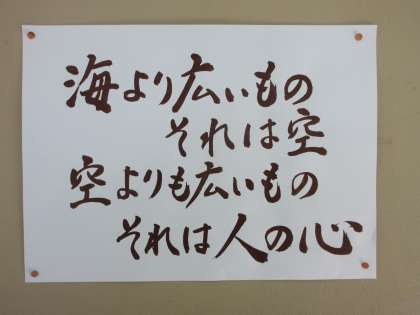 海より広いもの
それは空
空よりも広いもの
それは人の心